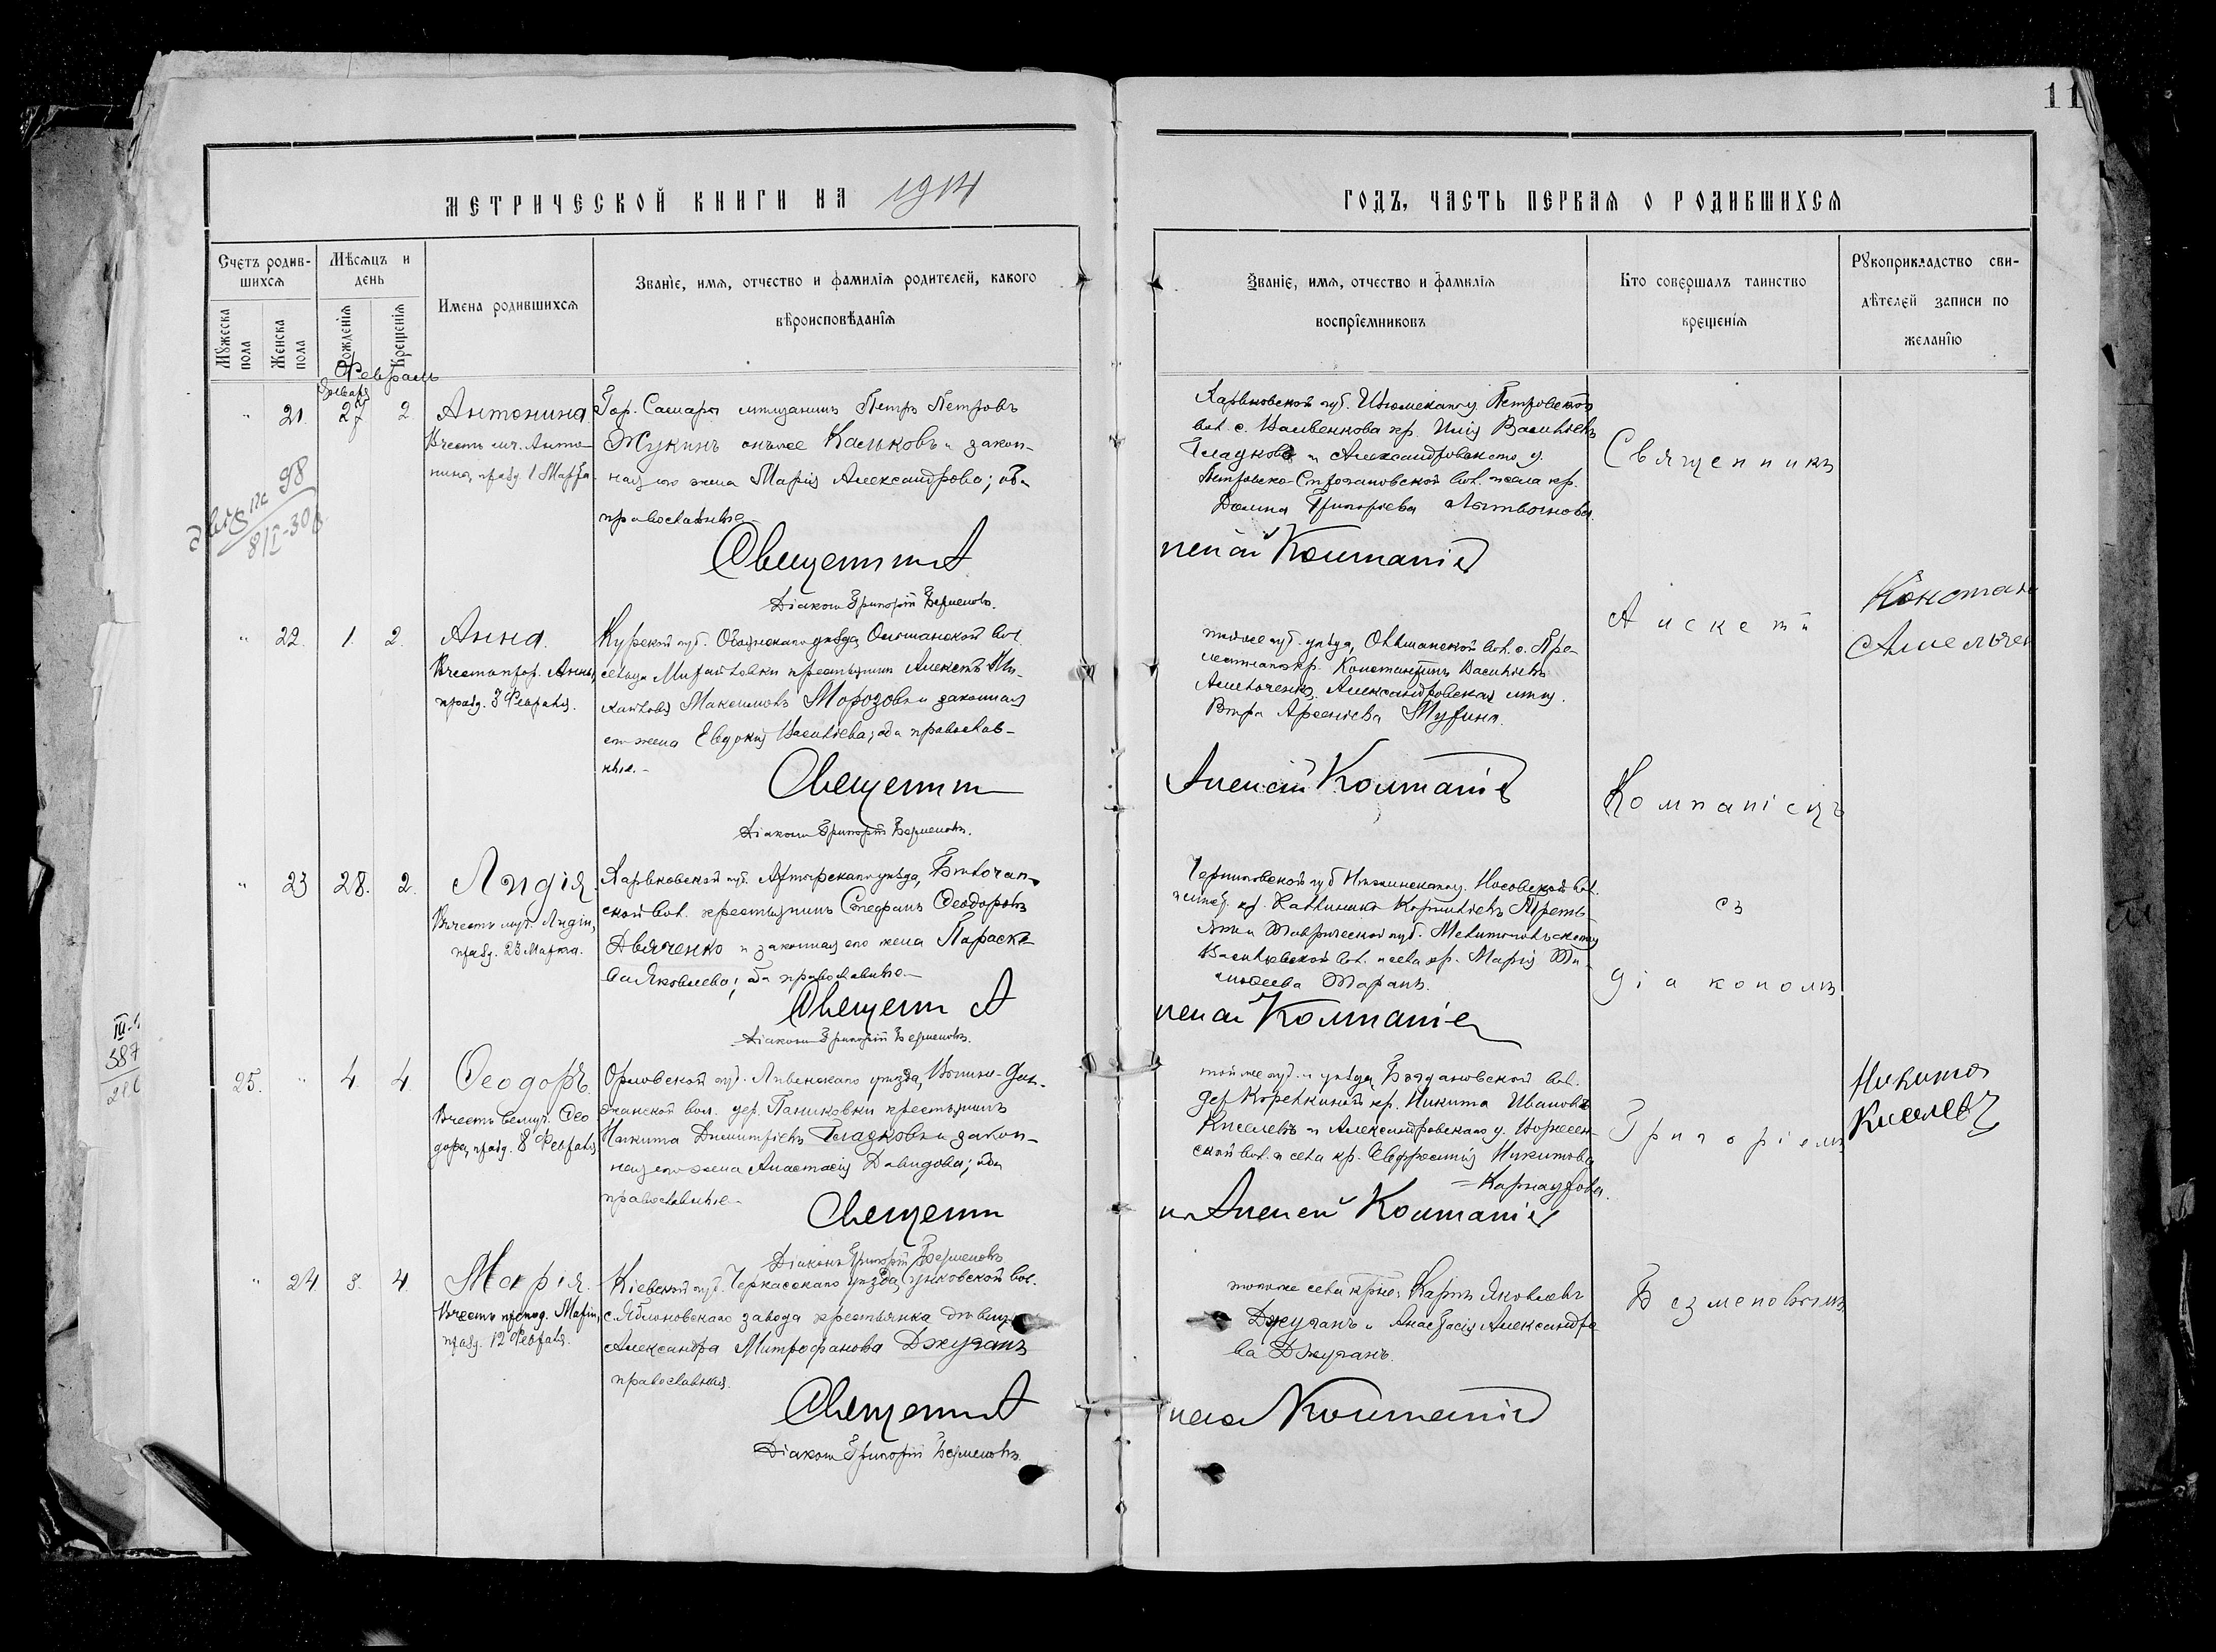 11
МЕТРИЧЕСКОЙ КНИГИ НА 1914
ГОДЪ, ЧАСТЬ ПЕРВАЯ О РОДИВШИХСЯ
Счетъ родив-
шихся
Мужеска пола
Женска пола
Мѣсяцъ и
день
Рожденія
Крещенія
Имена родившихся
Званіе, имя, отчество и фамилія родителей, какого
вѣроисповѣданія
Званіе, имя, отчество и фамилія
воспріемниковъ
Кто совершалъ таинство
крещенія
Рукоприкладство сви-
дѣтелей записи по
желанію
Февраль
Января
21. 27 2. Антонина
Въ честь мч. Анто-
нины, празд. 1 Марта
Гор. Самары мѣщанинъ Петръ Петровъ
Жукинъ онъ же Каськовъ и закон-
ная его жена Марія Александрова; оба
православные
Священникъ А
Діаконъ Григорій Безменовъ.
Харьковской губ. Изюмскаго у. Петровской
вол. с. кр. Илія Васильевъ
Гладковъ и Александровскаго у.
вол. и села кр.
Домна Григорьева
лексѣй Компаніец
98
22. 1. 2. Анна.
Въ честь прор. Анны,
празд. 3 Февраля.
Курской губ. Обоянскаго уѣзда, Ольшанской вол.
Михайловки крестьянинъ Алексѣй Ми-
хайловъ Максимовъ Морозовъ и законная
его жена Евдокія Васильева; оба православ-
ные.-
Священник
Діаконъ Григорій Безменовъ.
той же губ. уѣзда, Ольшанской вол. с. Пре-
кр. Константинъ Васильевъ
Амельченко, Александровская мѣщ.
Вѣра Арсеніева
Алексѣй Компаніец
Констан
Амельчен
23 28. 2. Лидія.
Въ честь муч. Лидіи,
празд. 23 Марта.
Харьковской губ. Ахтырскаго уѣзда,
ской вол. крестьянинъ Стефанъ Феодоровъ
Дьяченко и законная его жена Параске-
ва Яковлева; оба православные
Священн А
Діаконъ Григорій Безменовъ.
Черниговской губ Нѣжинскаго у. Носовской вол.
кр. Корнильевъ
и Таврической губ. Мелитопольскаго у
Васильевской вол. и села кр. Марія Ти-
моѳеева Таранъ.
лексѣй Компаніец
25. 4 4. Ѳеодоръ.
Въ честь велмуч. Ѳео
дора, празд. 8 Февраля
Орловской губ. Ливенскаго уѣзда,
вол. дер. Паниковки крестьянинъ
Никита Димитріевъ Гладковъ и закон-
ная его жена Анастасія Давидова; оба
православные-
Священни
Діаконъ Григорій Безменовъ
той же губ. и уѣзда, Богдановской вол.
дер Корелкиной кр. Никита Ивановъ
Киселевъ и Александровскаго у.
ской вол. и села кр. Евфросинія Никитова
Карнаухова.
Алексей Компаніец
Никита
Киселевъ
24 3. 4. Марія.
Въ честь препод. Маріи,
празд. 12 Февраля.
Кіевской губ. Черкасскаго уѣзда, вол.
с. Яблоновскаго завода крестьянка дѣвица
Александра Митрофанова Джуганъ
православная.
Священни А
Діаконъ Григорій Безменовъ.
того же села кр-не: Карпъ Яковлевъ
Джуганъ и Анастасія Александро
ва Джуганъ.
Компаніец
Священникъ
Алексѣй
Компаніецъ
съ
діакономъ
Григоріемъ
Безменовымъ